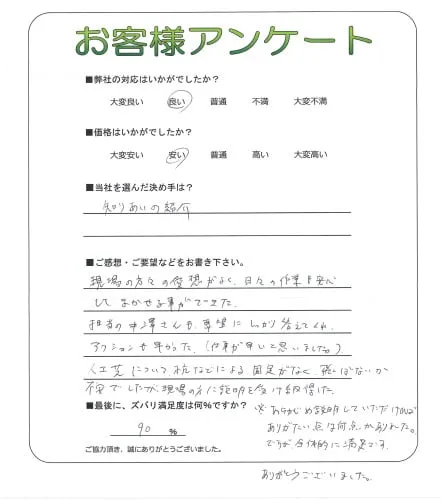 お客様アンケート
■弊社の対応はいかがでしたか?
大変良い 良い 普通 不満 大変不満
■価格はいかがでしたか?
大変安い 安い 普通 高い 大変高い
■当社を選んだ決め手は?
知りあいの紹介
■ご感想・ご要望などをお書き下さい。
現場の方々の愛想がよく、日々の作業を安心
して まかせる事ができた。
担当の中澤さんも要望にしっかり答えてくれ、
アクションも早かった。(仕事が早いと思いました。)
人工芝について、杭などによる固定がなく、飛ばないか
不安でしたが現場の方に説明を受け納得した。
■最後に、ズバリ満足度は何%ですか?
90 %
※あらかじめ説明していただければ
ありがたい点は何点かありました。
ですが全体的に満足です。
ご協力頂き、誠にありがとうございました。
ありがとうございました。